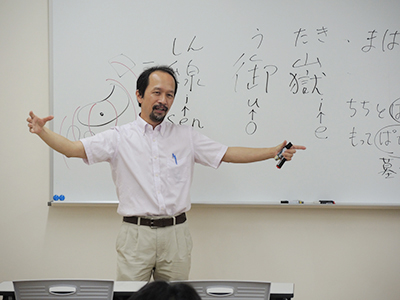 しん う たき ・まは
線 御 嶽
i u i
↑ ↑ ↑
en o e
ちちと
もって
墓